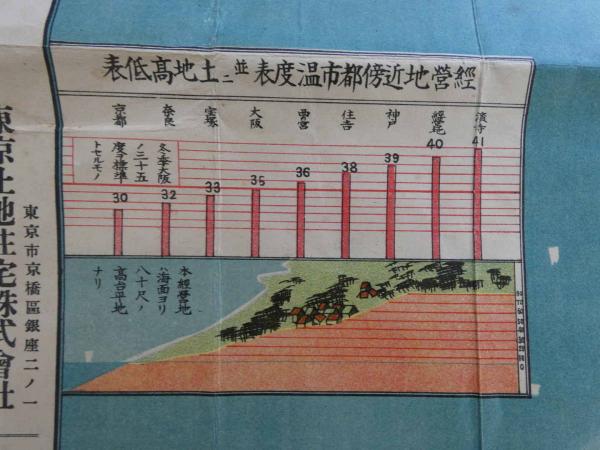 經營地近傍都市溫度表並ニ土地高低表
濱寺
經營地
神戸
住吉
西宮
大阪
宝塚
奈良
京都
41
40
39
38
36
35
33
32
30
冬季大阪
ノ三十五
度ヲ標準
トセルモノ
本經營地
ハ海面ヨリ
八十尺ノ
高台平地
ナリ
東京市京橋區銀座二ノ一
東京土地住宅株式會社